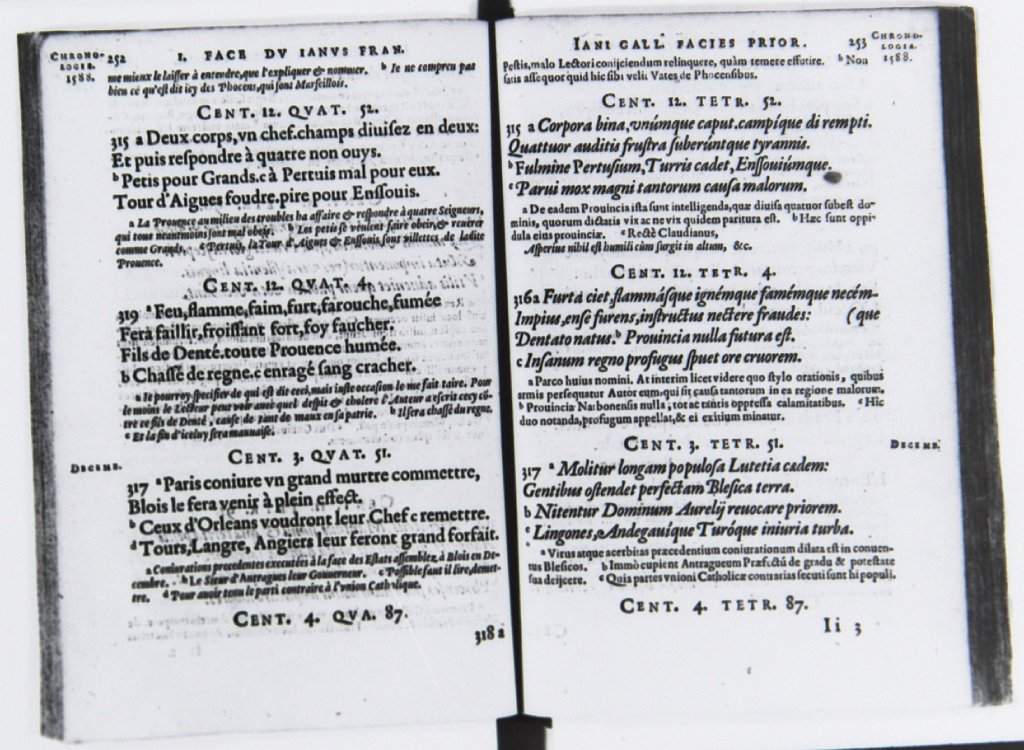 CHRONO-
LOGIA.
1588.
252
I. FACE DV IANVS FRAN.
me mieux le laisser à entendre, que l'expliquer & nommer. b Ie ne compren pas
bien cé qu'est dit icy des Phocens, qui sont Marseillois.
CENT. 12. QVAT. 52.
315 a Deux corps, vn chef. champs diuisez en deux:
Et puis respondre à quatre non ouys.
b Petis pour Grands. c à Pertuis mal pour eux.
Tour d'Aigues foudre. pire pour Enssouis.
a La Prouence au milieu des troubles ha affaire & respondre à quatre Seigneurs,
qui tous neantmoins sont mal obeis. b Les petis se veulent faire obeir, & reuerer
comme Grands. c Pertuis, la Tour d'Aigues & Enssouis sont villettes de ladite
Prouence.
CENT. 12. QVAT. 4.
319 a Feu, flamme, faim, furt, farouche, fumée
Fera faillir, froissant fort, foy faucher.
Fils de Denté. toute Prouence humée.
b Chassé de regne. c enragé sang cracher.
a Ie pourroy specifier de qui est dit cecy, mais iuste occasion le me fait taire. Pour
le moins le Lecteur peut voir auec quel despit & cholere l'Auteur a escrit cecy cō-
tre ce fils de Denté, cause de tant de maux en sa patrie. b Il sera chassé du regne.
c Et la fin d'iceluy sera mauuaise.
CENT. 3. QVAT. 51.
DECEMB.
317 a Paris coniure vn grand murtre commettre,
Blois le fera venir à plein effect.
b Ceux d'Orleans voudront leur Chef c remettre.
d Tours, Langre, Angiers leur feront grand forfait.
a Coniurations precedentes executées à la face des Estats assemblez, à Blois en De-
cembre. b Le Sieur d'Antragues leur Gouuerneur. c Possible faut il lire, demet-
tre. d Pour auoir tenu le parti contraire à l'vnion Catholique.
CENT. 4. QVA. 87.
318 a
IANI GALL. FACIES PRIOR.
253
CHRONO-
LOGIA.
1588.
Pestis, malo Lectori conijciendum relinquere, quàm temere effutire. b Non
satis assequor quid hic sibi velit Vates de Phocensibus.
CENT. 12. TETR. 52.
315 a Corpora bina, vnúmque caput. campíque di rempti.
Quattuor auditis frustra suberúntque tyrannis.
b Fulmine Pertusium, Turris cadet, Enssouiúmque.
c Parui mox magni tantorum causa malorum.
a De eadem Prouincia ista sunt intelligenda, quæ diuisa quatuor subest do-
minis, quorum dictatis vix ac ne vix quidem paritura est. b Hæc sunt oppi-
dula eius prouinciæ. c Rectè Claudianus,
Asperius nihil est humili cùm surgit in altum, &c.
CENT. 12. TETR. 4.
316 a Furta ciet, flammásque ignémque famémque necém-
Impius, ense furens, instructus nectere fraudes: (que
Dentato natus. b Prouincia nulla futura est.
c Insanum regno profugus spuet ore cruorem.
a Parco huius nomini. At interim licet videre quo stylo orationis, quibus
armis persequatur Autor eum, qui sit causa tantorum in ea regione malorum.
b Prouincia Narbonensis nulla, tot ac tantis oppressa calamitatibus. c Hic
duo notanda, profugum appellat, & ei exitium minatur.
CENT. 3. TETR. 51.
DECEMB.
317 a Molitur longam populosa Lutetia cædem:
Gentibus ostendet perfectam Blesica terra.
b Nitentur Dominum Aurelij reuocare priorem.
c Lingones, Andegauíque Turóque iniuria turba.
a Virus atque acerbitas præcedentium coniurationum dilata est in conuen-
tus Blesicos. b Immò cupient Antragueum Præfectū de gradu & potestate
sua deijcere. c Quia partes vnioni Catholicæ contrarias secuti sunt hi populi.
CENT. 4. TETR. 87.
Ii 3